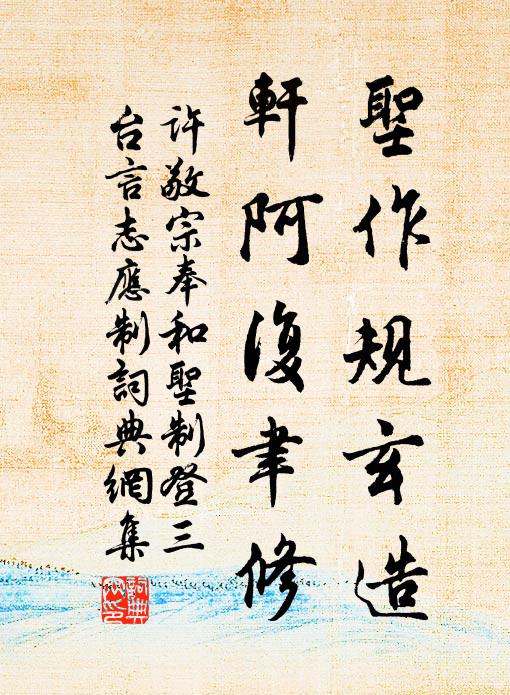 聖作規玄造
軒阿復聿修
許敬宗奉和聖制登三
台言志應制詞典網集